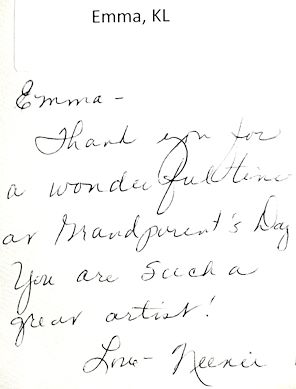 Emma, KL
Emma -
Thank you for
a wonderful time
at Grandparent's Day
You are such a
great artist!
Love - Neenie